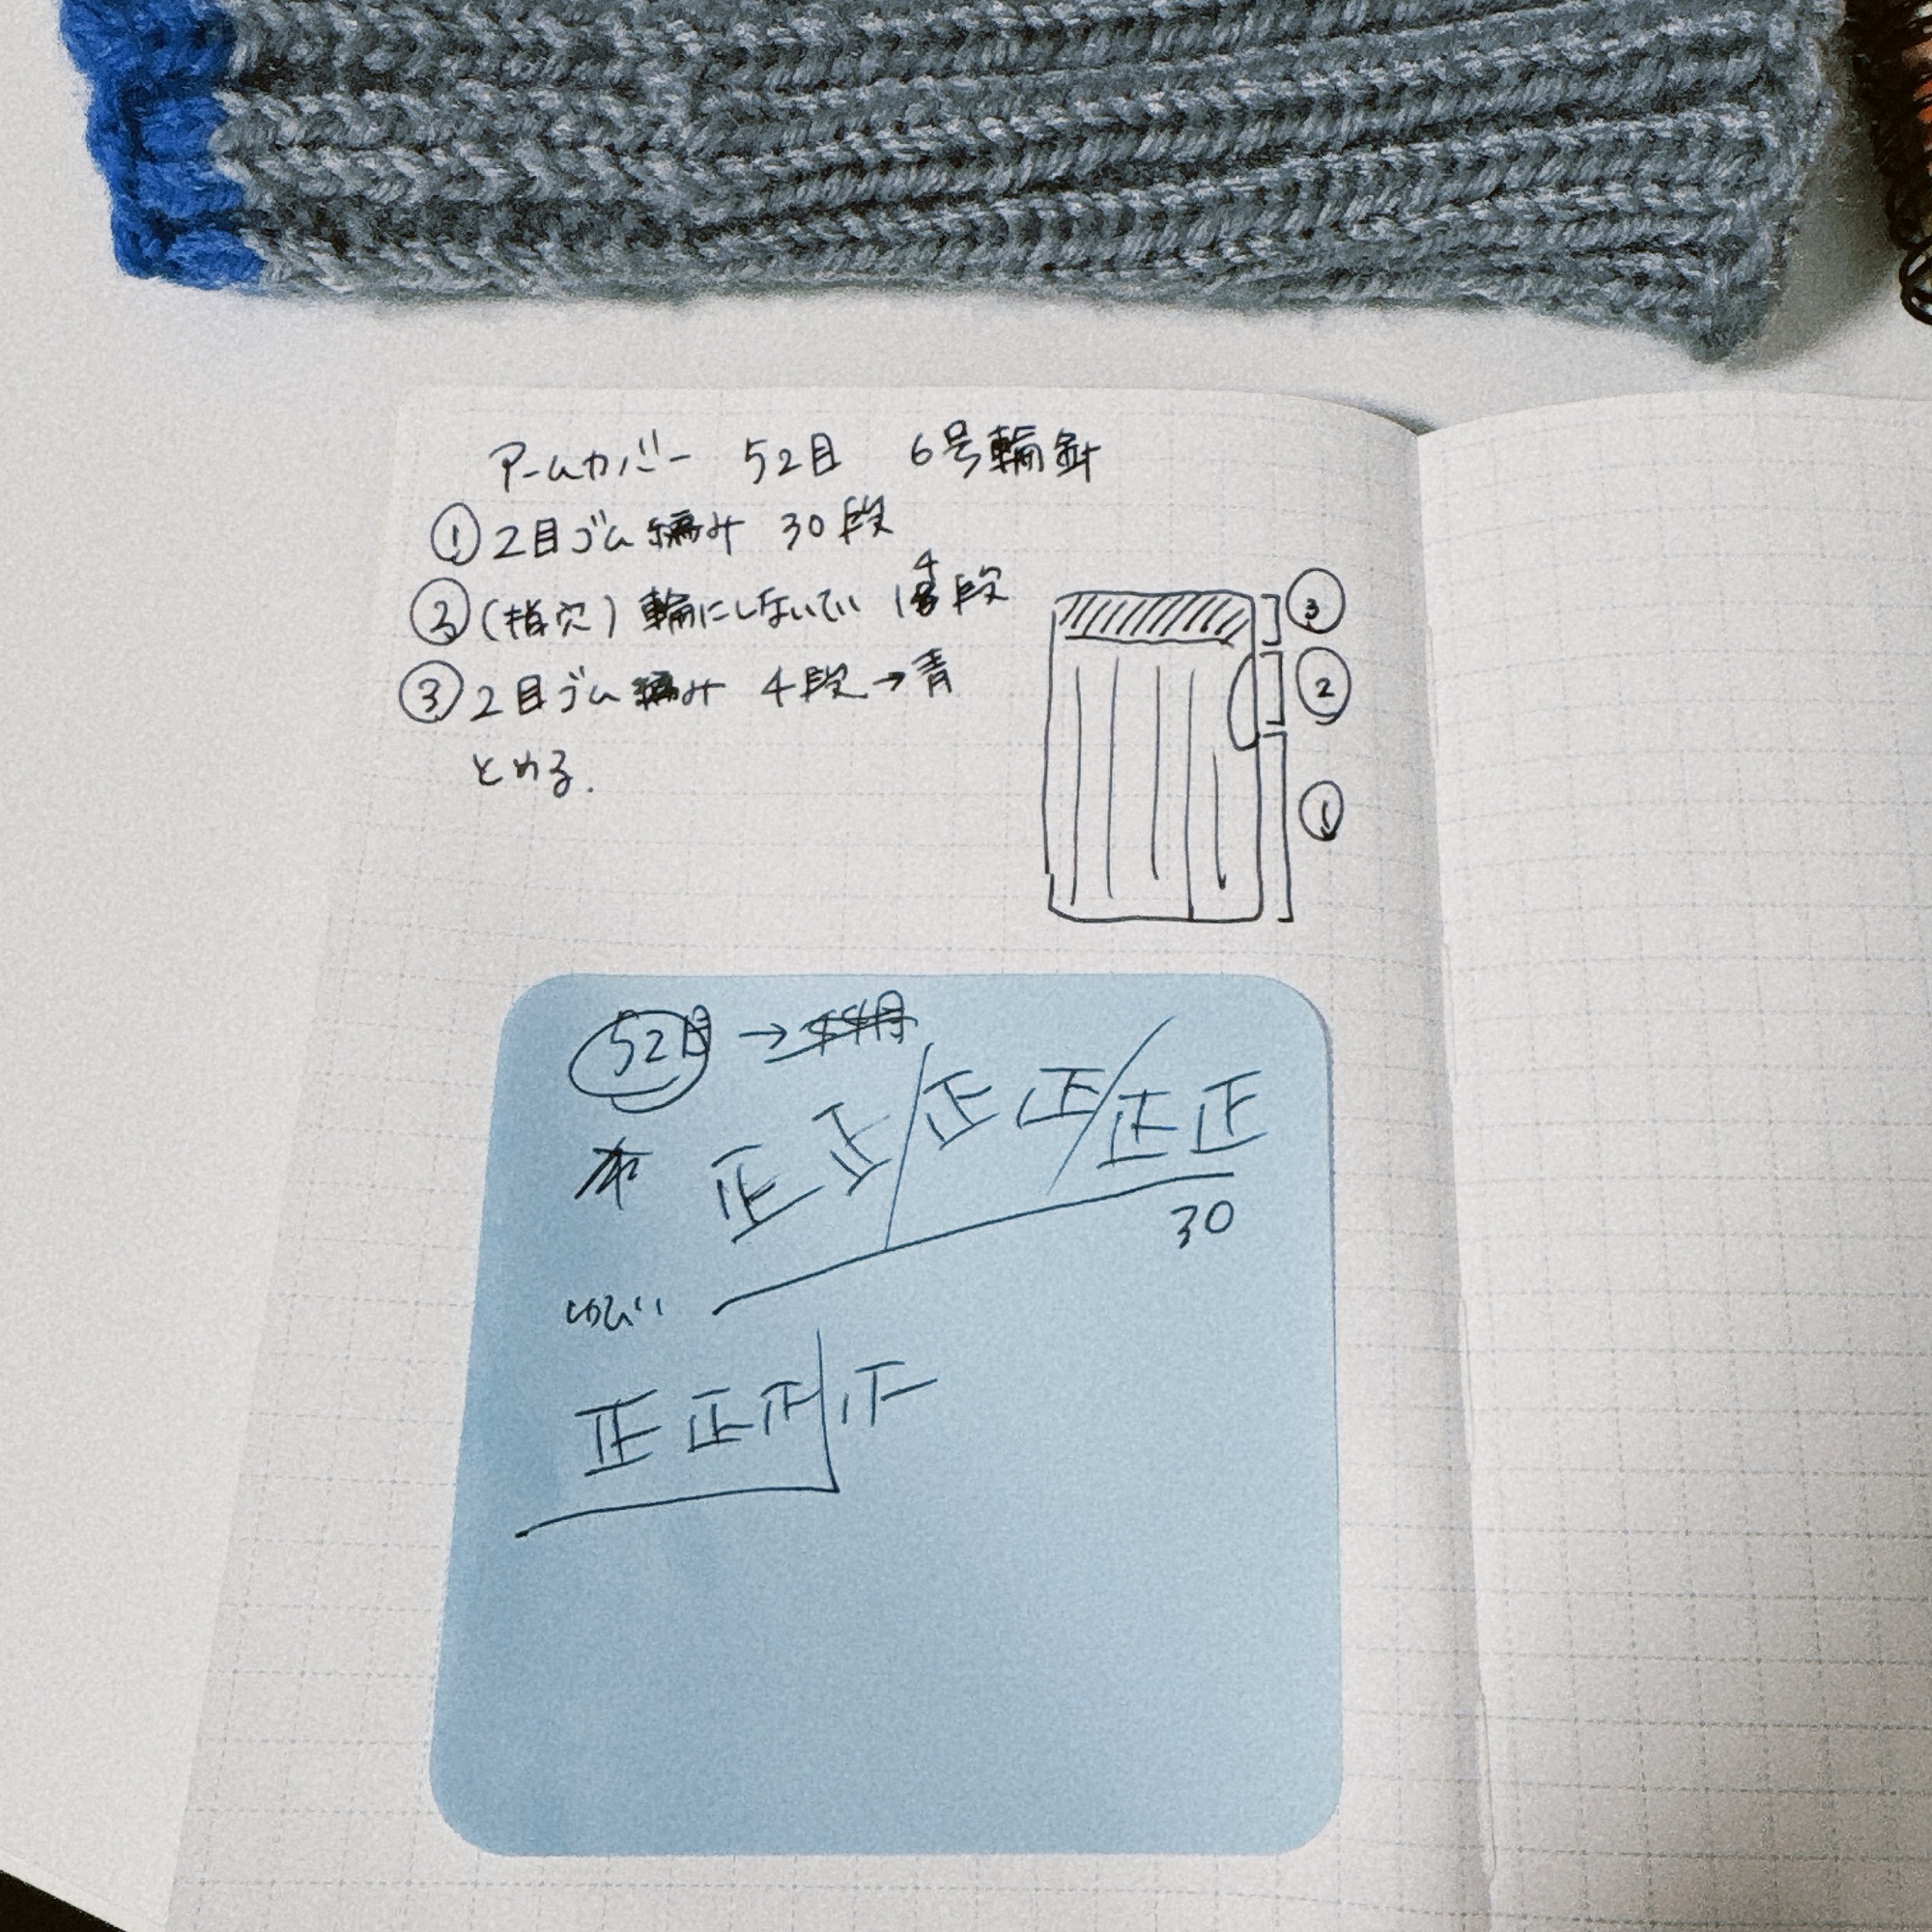 アームカバー 52目 6号輪針
① 2目ゴム編み 30段
② (指穴) 輪にしないでい 14段
③ 2目ゴム編み 4段→青
とめる.
③
②
①
52目 →
正 正 正 正 正 正
30
正 正